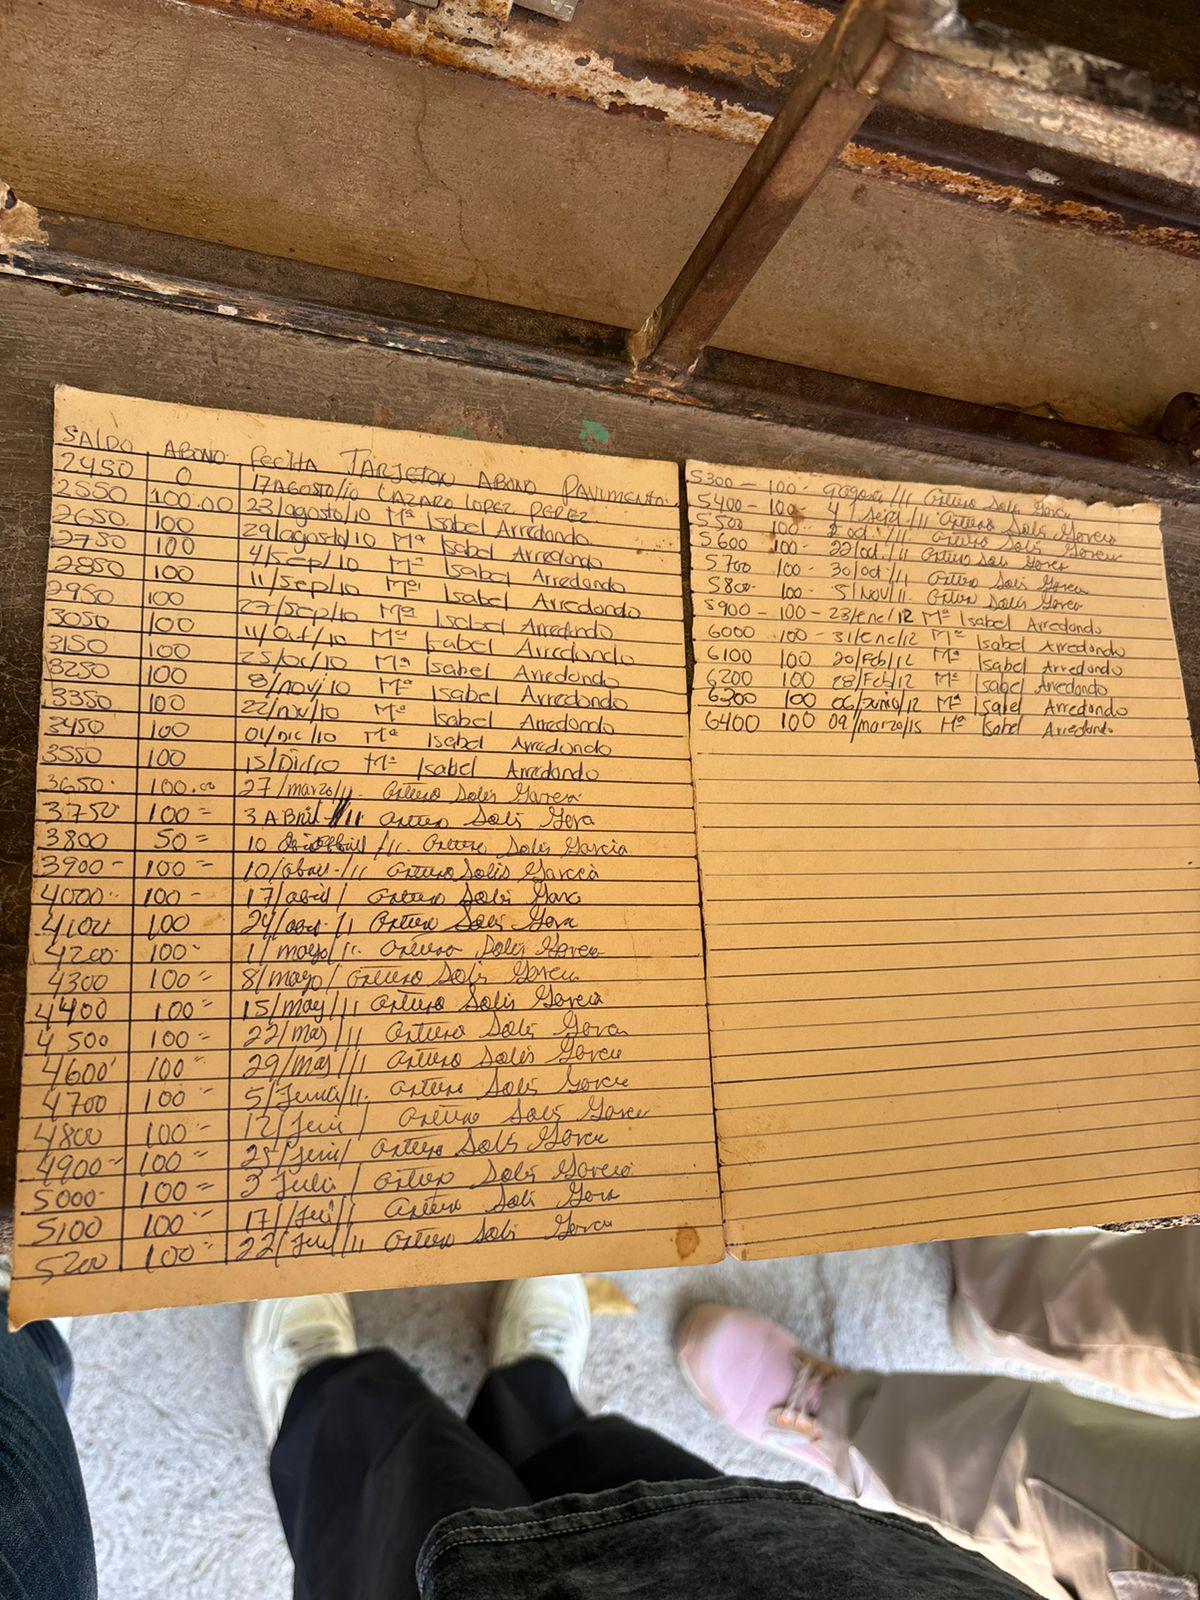 SALDO ABONO FECHA TARJETON ABONO PAVIMENTO.
2450 0 17 AGOSTO/10 LAZARO LOPEZ PEREZ
2550 100.00 23/agosto/10 Mª Isabel Arredondo
2650 100 29/agosto/10 Mª Isabel Arredondo
2750 100 4/sep/10 Mª Isabel Arredondo
2850 100 11/sep/10 Mª Isabel Arredondo
2950 100 27/sep/10 Mª Isabel Arredondo
3050 100 11/Oct/10 Mª Isabel Arredondo
3150 100 25/Oc/10 Mª Isabel Arredondo
3250 100 8/nov/10 Mª Isabel Arredondo
3350 100 22/nov/10 Mª Isabel Arredondo
3450 100 01/Dic/10 Mª Isabel Arredondo
3550 100 15/Dic/10 Mª Isabel Arredondo
3650 100.00 27/marzo/11. Arturo Solis Garcia
3750 100= 3 Abril 11 Arturo Solis
3800 50= 10 /11. Arturo Solis Garcia
3900- 100= 10/abril/11 Arturo Solis Garcia
4000 100- 17/abril/ Arturo Solis
4100 100 24/abr/11 Arturo Solis
4200 100- 1/mayo/11. Arturo Solis Garcia
4300 100= 8/mayo/ Arturo Solis Garcia
4400 100= 15/may/11 Arturo Solis Garcia
4500 100= 22/may/11 Arturo Solis
4600 100= 29/may/11 Arturo Solis
4700 100= 5/Junio/11. Arturo Solis
4800 100- 12/Juni/ Arturo Solis
4900 100= 25/Juni/ Arturo Solis
5000 100= 3 Juli/ Arturo Solis Garcia
5100 100- 17/Jul/ Arturo Solis
5200 100= 22/Jul/11 Arturo Solis
5300 - 100- 9agosto/11 Arturo Solis
5400 - 100- 4 Sept/11 Arturo Solis Garcia
5500 100- 2 oct/11 Arturo Solis
5600 100- 22/oct/11 Arturo Solis
5700 100- 30/oct/11 Arturo Solis
5800- 100- 5/Nov/11. Arturo Solis
5900 - 100 - 23/ene/12 Mª Isabel Arredondo
6000 100 - 31/ene/12 Mª Isabel Arredondo
6100 100 20/Feb/12 Mª Isabel Arredondo
6200 100 28/Feb/12 Mª Isabel Arredondo
6300 100 06/Junio/12 Mª Isabel Arredondo
6400 100 09/marzo/15 Mª Isabel Arredondo